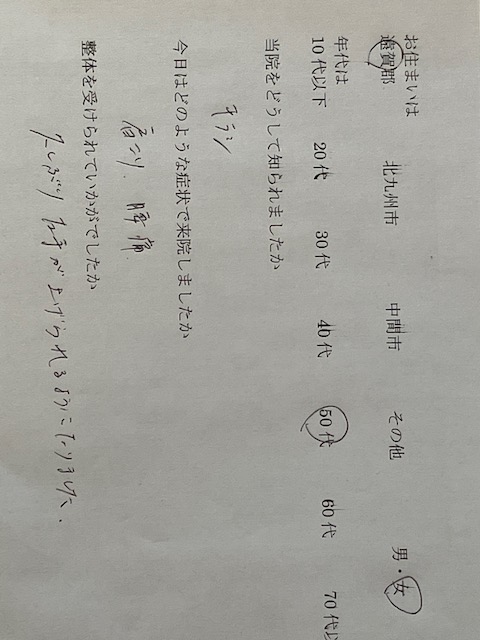 お住まいは
遠賀郡 北九州市 中間市 その他 男・女
年代は
10代以下 20代 30代 40代 50代 60代 70代以
当院をどうして知られましたか
チラシ
今日はどのような症状で来院しましたか
肩こり、腰痛
整体を受けられていかがでしたか
久しぶり 右手が上げられるようになりました.